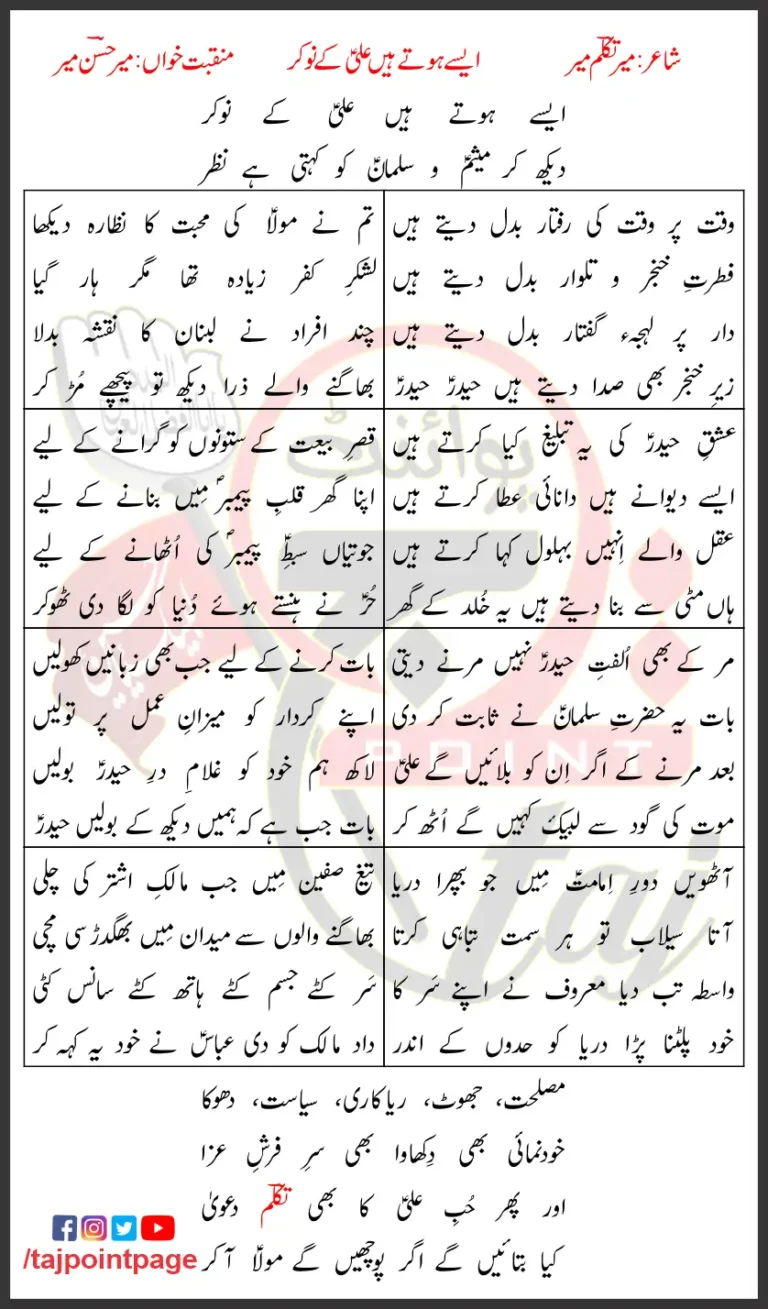 شاعر: میر تکلّم میر ایسے ہوتے ہیں علیؑ کے نوکر منقبت خواں: میر حسنؔ میر
ایسے ہوتے ہیں علیؑ کے نوکر
دیکھ کر میثمؑ و سلمانؑ کو کہتی ہے نظر
وقت پر وقت کی رفتار بدل دیتے ہیں
فطرتِ خنجر و تلوار بدل دیتے ہیں
دار پر لہجہء گفتار بدل دیتے ہیں
زیرِ خنجر بھی صدا دیتے ہیں حیدرؑ حیدرؑ
تم نے مولاؑ کی محبت کا نظارہ دیکھا
لشکرِ کفر زیادہ تھا مگر ہار گیا
چند افراد نے لبنان کا نقشہ بدلا
بھاگنے والے ذرا دیکھ تو پیچھے مُڑ کر
عشقِ حیدرؑ کی یہ تبلیغ کیا کرتے ہیں
ایسے دیوانے ہیں دانائی عطا کرتے ہیں
عقل والے اِنہیں بہلول کہا کرتے ہیں
ہاں مٹی سے بنا دیتے ہیں یہ خُلد کے گھر
قصرِ بیعت کے ستونوں کو گرانے کے لیے
اپنا گھر قلبِ پیمبرؐ مِیں بنانے کے لیے
جوتیاں سبطِؑ پیمبرؐ کی اُٹھانے کے لیے
حُرؑ نے ہنستے ہوئے دُنیا کو لگا دی ٹھوکر
مر کے بھی اُلفتِ حیدرؑ نہیں مرنے دیتی
بات یہ حضرتِ سلمانؑ نے ثابت کر دی
بعد مرنے کے اگر اِن کو بلائیں گے علیؑ
موت کی گود سے لبیک کہیں گے اُٹھ کر
بات کرنے کے لیے جب بھی زبانیں کھولیں
اپنے کردار کو میزانِ عمل پر تولیں
لاکھ ہم خود کو غلامِ درِ حیدرؑ بولیں
بات جب ہے کہ ہمیں دیکھ کے بولیں حیدرؑ
آٹھویں دورِ اِمامتؑ مِیں جو بپھرا دریا
آتا سیلاب تو ہر سمت تباہی کرتا
واسطہ تب دیا معروف نے اپنے سَر کا
خود پلٹنا پڑا دریا کو حدوں کے اندر
تیغ صفین مِیں جب مالکِ اشتر کی چلی
بھاگنے والوں سے میدان مِیں بھگدڑ سی مچی
سَر کٹے جسم کٹے ہاتھ کٹے سانس کٹی
داد مالک کو دی عباسؑ نے خود یہ کہہ کر
مصلحت، جھوٹ، ریاکاری، سیاست، دھوکا
خودنمائی بھی دِکھاوا بھی سرِ فرشِ عزا
اور پھر حُبِ علیؑ کا بھی تکلّم دعویٰ
کیا بتائیں گے اگر پوچھیں گے مولاؑ آ کر
/tajpointpage
پوائنٹ
POINT
taj